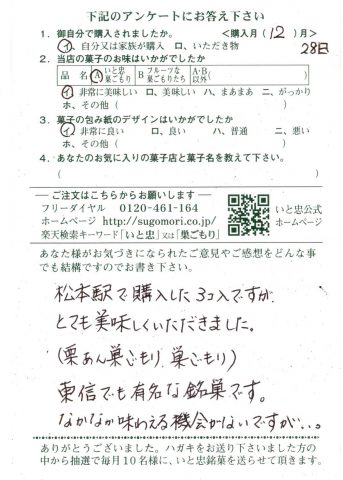 下記のアンケートにお答え下さい
1. 御自分で購入されましたか。 <購入月(12)月>
イ、自分又は家族が購入 ロ、いただき物 28日
2. 当店の菓子のお味はいかがでしたか
品 名 A いと忠巣ごもり B フルーツな巣ごもりたち A・B以外( )
イ、非常に美味しい ロ、美味しい ハ、まあまあ ニ、がっかり
ホ、その他( )
3. 菓子の包み紙のデザインはいかがでしたか
イ、非常に良い ロ、良い ハ、普通 ニ、悪い
ホ、その他( )
4. あなたのお気に入りの菓子店と菓子名を教えて下さい。
( )
―ご注文はこちらからお願いします―
フリーダイヤル 0120-461-164
ホームページ http://sugomori.co.jp/
楽天検索キーワード「いと忠」又は「巣ごもり」
いと忠公式
ホームページ
あなた様がお気づきになられたご意見やご感想をどんな事
でも結構ですのでお書き下さい。
松本駅で購入した3コ入ですが、
とても美味しくいただきました。
(栗あん巣ごもり、巣ごもり)
東信でも有名な銘菓です。
なかなか味わえる機会がないですが...。
ありがとうございました。ハガキをお送り下さいました方の
中から抽選で毎月10名様に、いと忠銘菓を送らせて頂きます。